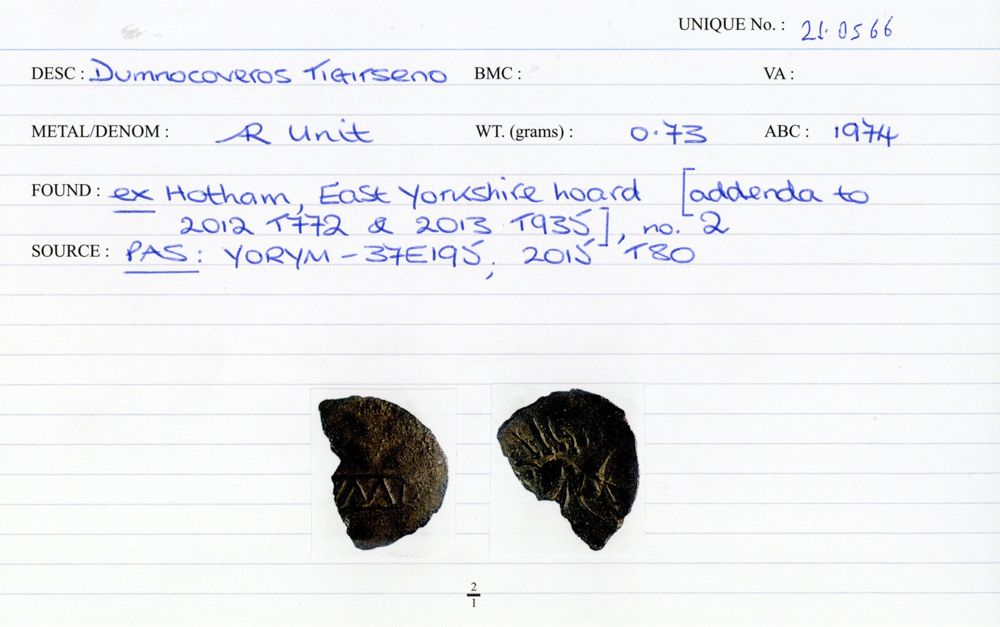 UNIQUE No. : 21.0566
DESC : Dumnocoveros Tigirseno BMC : VA :
METAL/DENOM : AR Unit WT. (grams) : 0.73 ABC : 1974
FOUND : ex Hotham, East Yorkshire hoard [addenda to
2012 T772 & 2013 T935], no. 2
SOURCE : PAS: YORYM-37E195; 2015 T80
2
1